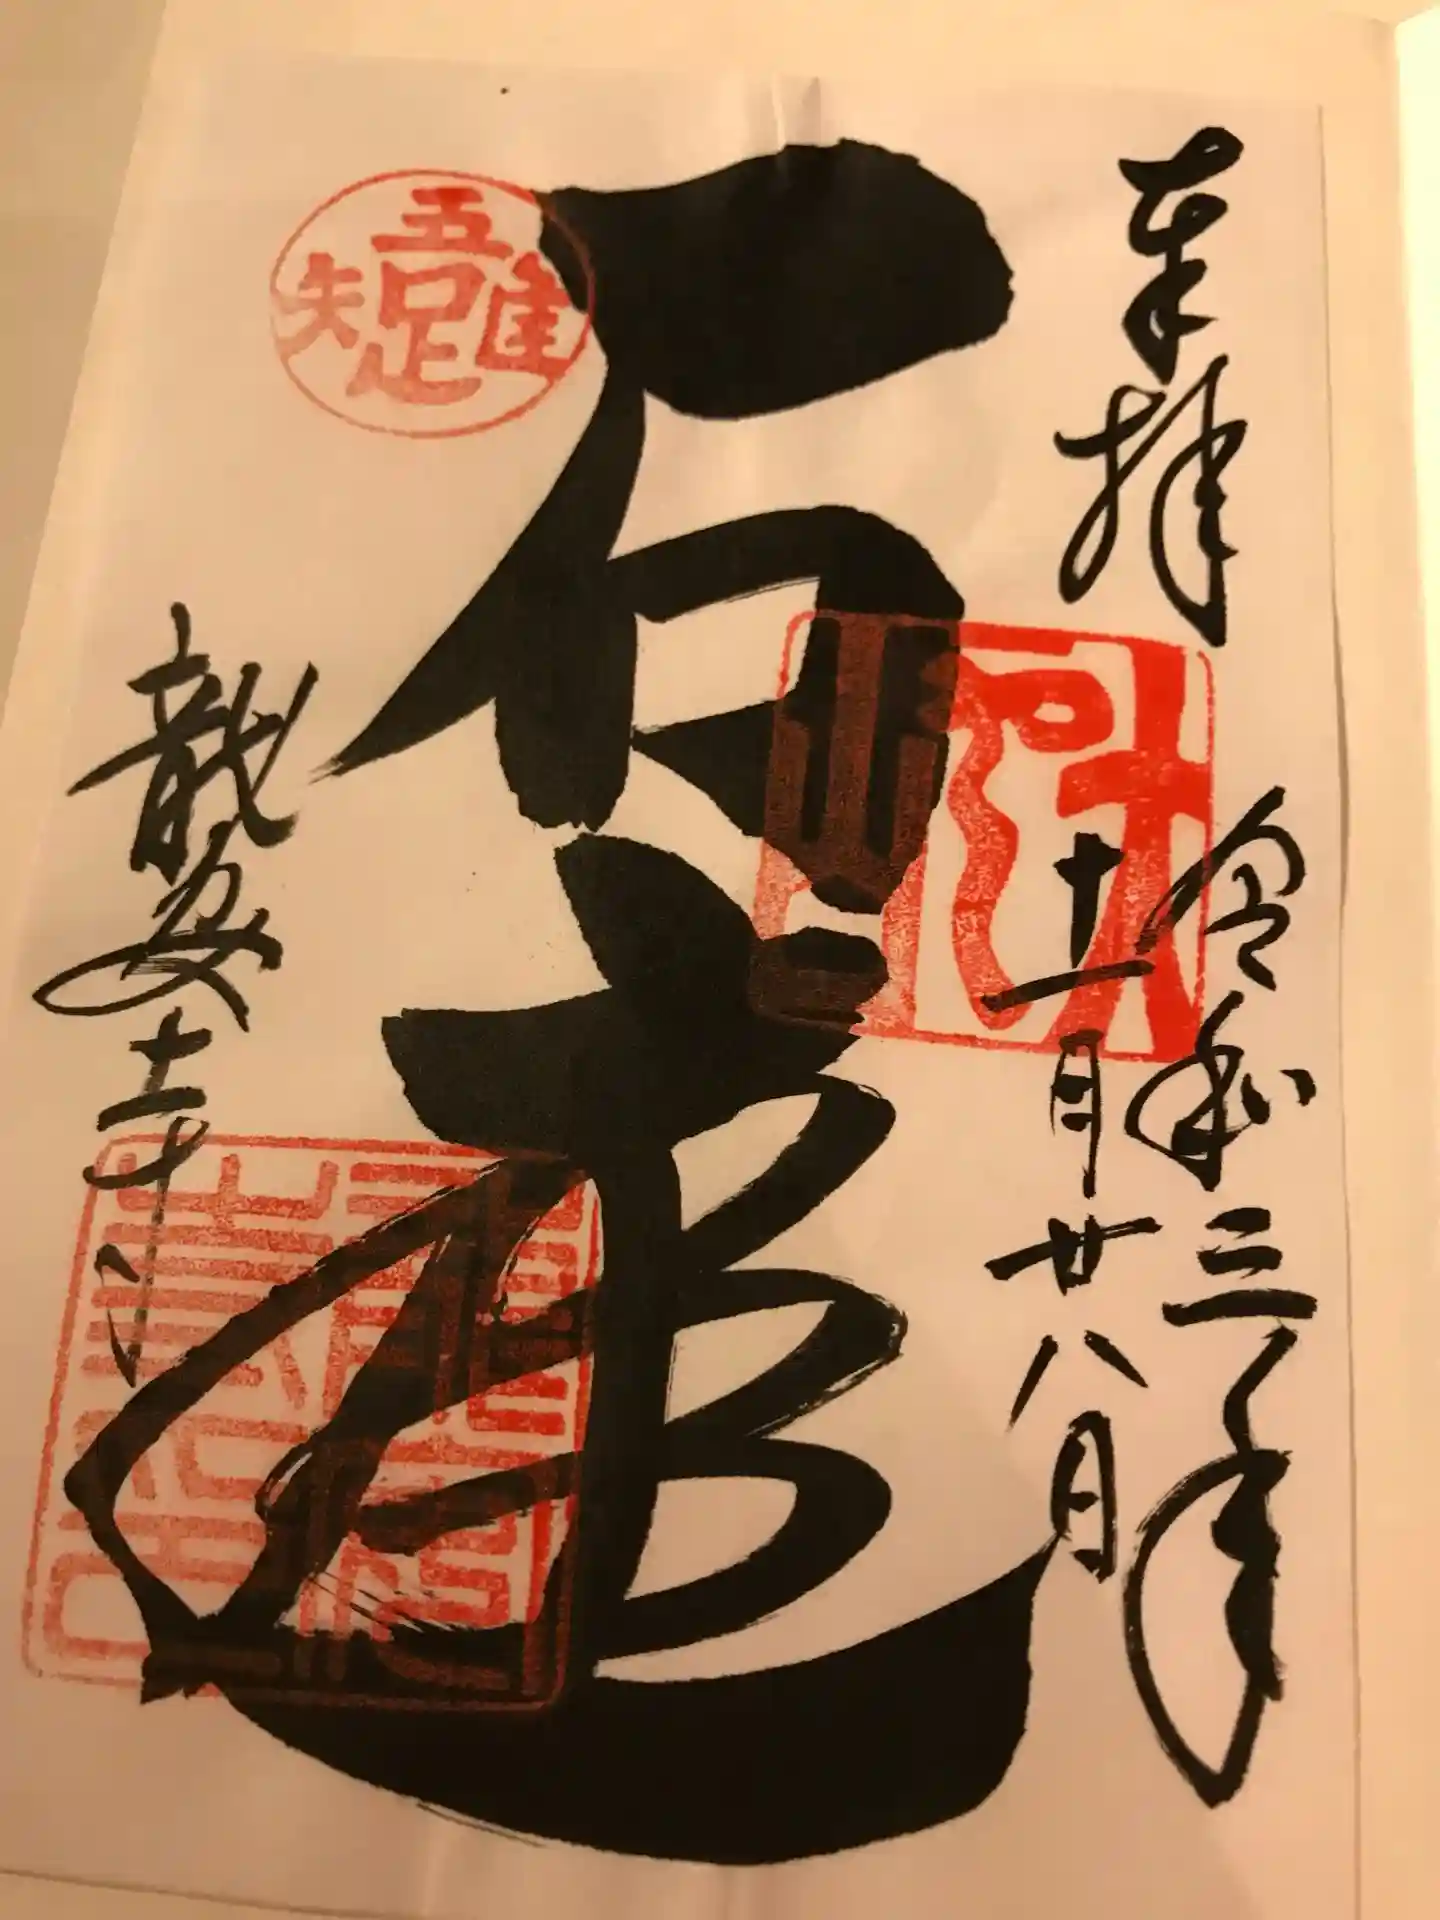 奉拝
令和三年
十一月廿八日
石庭
龍安寺
吾唯足知